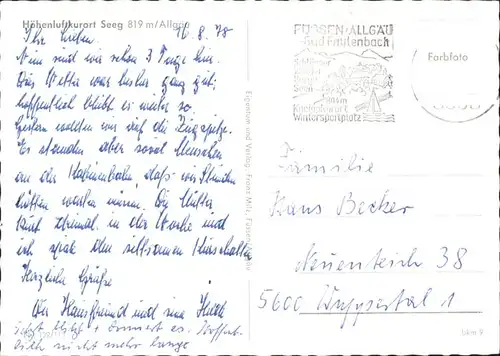 Höhenluftkurort Seeg 819 m/Allgäu
16.8.78
Ihr Lieben.
Nun sind wir schon 3 Tage hier.
Das Wetter war bisher ganz gut;
hoffentlich bleibt es weiter so.
Gestern wollten wir auf die Zugspitze.
Es standen aber soviel Menschen
an der Kabinenbahn, daß wir Stunden
hätten warten müssen. Die Mutter
kurt dreimal in der Woche und
ich den
Herzliche Grüße
Der Hausfreund und eine
Jetzt blitzt + donnert es. Hoffent-
lich nicht mehr lange
Eigentum und Verlag: Franz Milz, Füssen
FÜSSEN · ALLGÄU
Bad Faulenbach
Kneippkurort
Wintersportplatz
Farbfoto
Familie
Hans Becker
Neuenteich 38
5600 Wuppertal 1
bkm 9